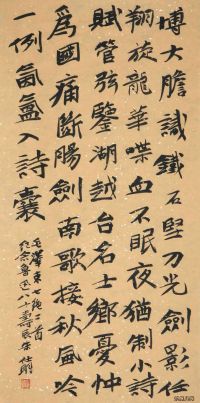 博大膽識鐵石堅刀光劍影任
翔旋龍華喋血不眠夜猶制小詩
賦管弦鑒湖越台名士鄉憂忡
爲國痛斷腸劍南歌接秋風吟
一例氤氳入詩囊
毛澤東七絕二首
紀念魯迅八十壽辰